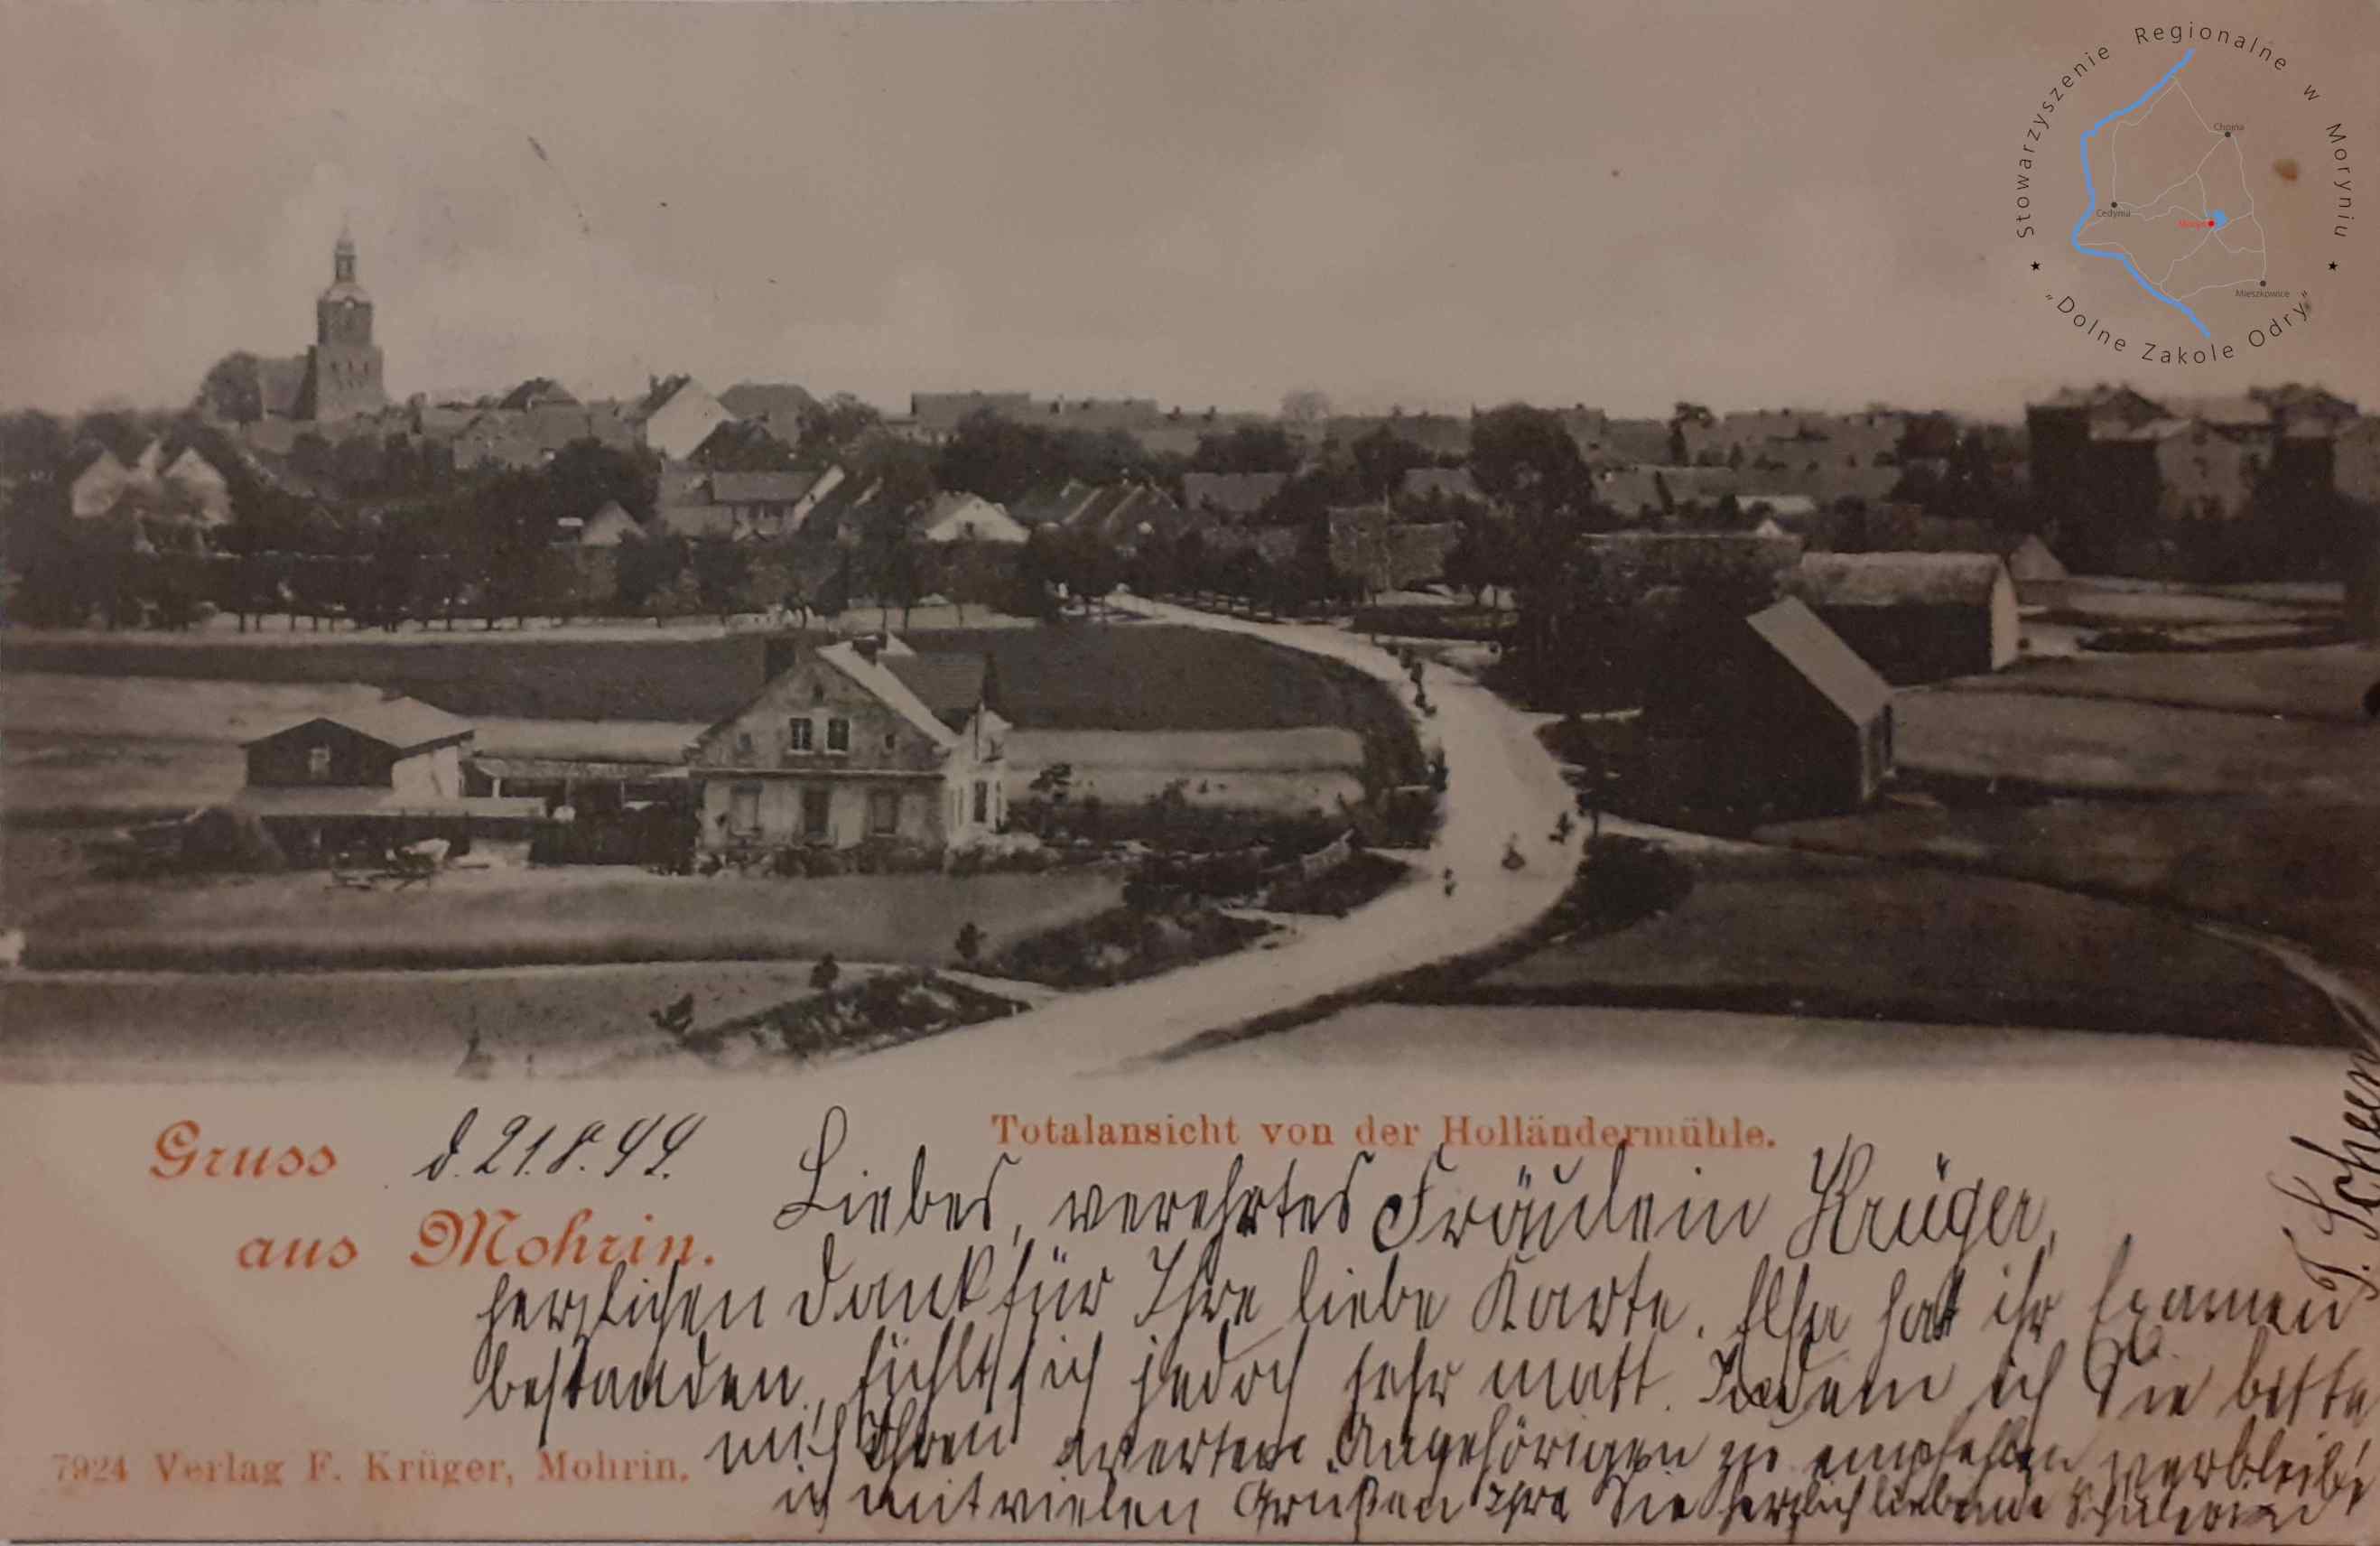 Stowarzyszenie Regionalne w Moryniu
★ „Dolne Zakole Odry” ★
Chojna
Cedynia
Moryń
Mieszkowice
Totalansicht von der Holländermühle.
Gruss
aus Mohrin.
d. 21.8.99.
Liebes, verehrtes Fräulein Krüger,
herzlichen Dank für Ihre liebe Karte. Elsa hat ihr Examen
bestanden, fühlt sich jedoch sehr matt. Indem ich Sie bitte
mich Ihren werten Angehörigen zu empfehlen verbleibe
ich mit vielen Grüßen Ihre Sie herzlich liebende Schülerin
7924 Verlag F. Krüger, Mohrin.